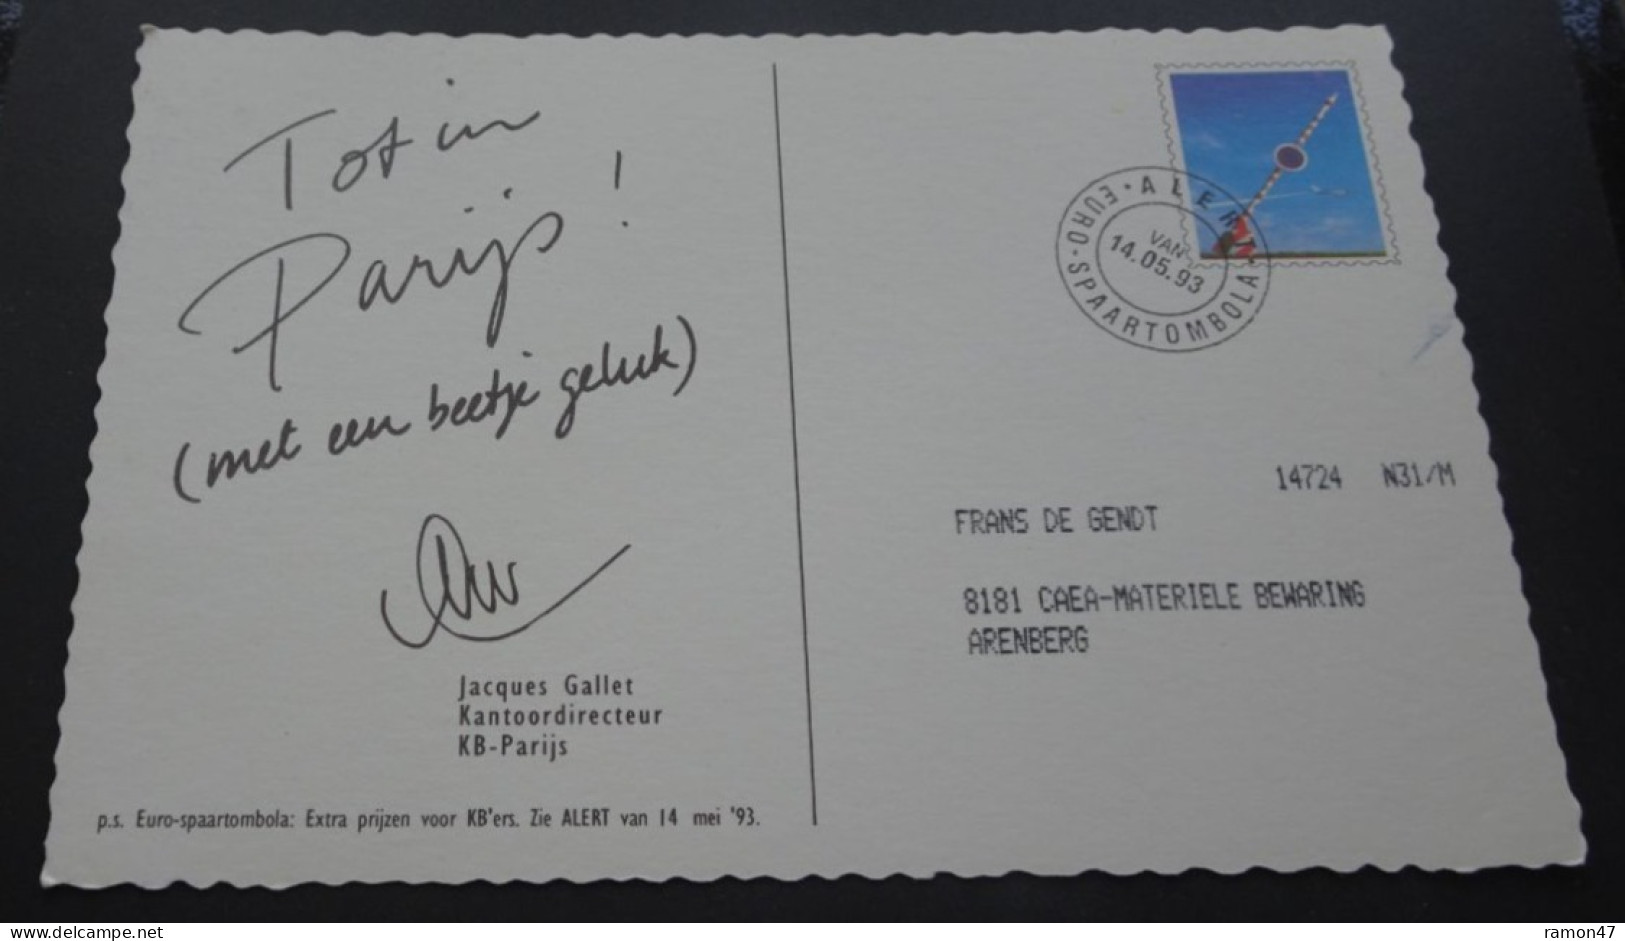 Tot in
Parijs!
(met een beetje geluk)
Jacques Gallet
Kantoordirecteur
KB-Parijs
p.s. Euro-spaartombola: Extra prijzen voor KB'ers. Zie ALERT van 14 mei '93.
ALERT
VAN
14.05.93
EURO-SPAARTOMBOLA
14724 N31/M
FRANS DE GENDT
8181 CAEA-MATERIELE BEWARING
ARENBERG
delcampe.net
ramon47